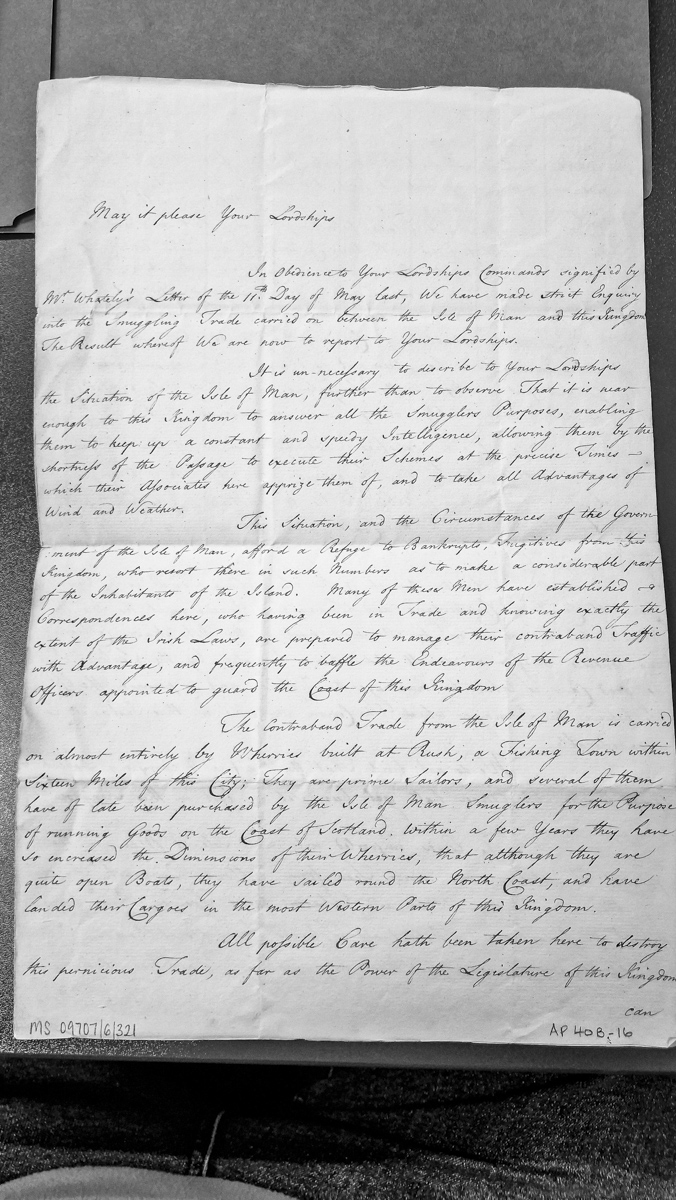 May it please Your Lordships
In Obedience to Your Lordships Commands signified by
Mr. Whately's Letter of the 11th. Day of May last, We have made strict Enquiry
into the Smuggling Trade carried on between the Isle of Man and this Kingdom
The Result whereof We are now to report to Your Lordships.
It is un-necessary to describe to Your Lordships
the Situation of the Isle of Man, further than to observe That it is near
enough to this Kingdom to answer all the Smugglers Purposes, enabling
them to keep up a constant and speedy Intelligence, allowing them by the
shortness of the Passage to execute their Schemes at the precise Times —
which their Associates here apprize them of, and to take all Advantages of
Wind and Weather.
This Situation, and the Circumstances of the Govern
:ment of the Isle of Man, afford a Refuge to Bankrupts, Fugitives from this
Kingdom, who resort there in such Numbers as to make a considerable part
of the Inhabitants of the Island. Many of these Men have established
Correspondences here, who having been in Trade and knowing exactly the
extent of the Irish Laws, are prepared to manage their contraband Traffic
with Advantage, and frequently to baffle the Endeavours of the Revenue
Officers appointed to guard the Coast of this Kingdom
The Contraband Trade from the Isle of Man is carried
on almost entirely by Wherries built at Rush, a Fishing Town within
Sixteen Miles of this City; They are prime Sailors, and several of them
have of late been purchased by the Isle of Man Smuglers for the Purpose
of running Goods on the Coast of Scotland. Within a few Years they have
so increased the Dimensions of their Wherries, that although they are
quite open Boats, they have sailed round the North Coast, and have
landed their Cargoes in the most Western Parts of this Kingdom.
All possible Care hath been taken here to destroy
this pernicious Trade, as far as the Power of the Legislature of this Kingdom
can
MS 09707/6/321
AP 40B-16